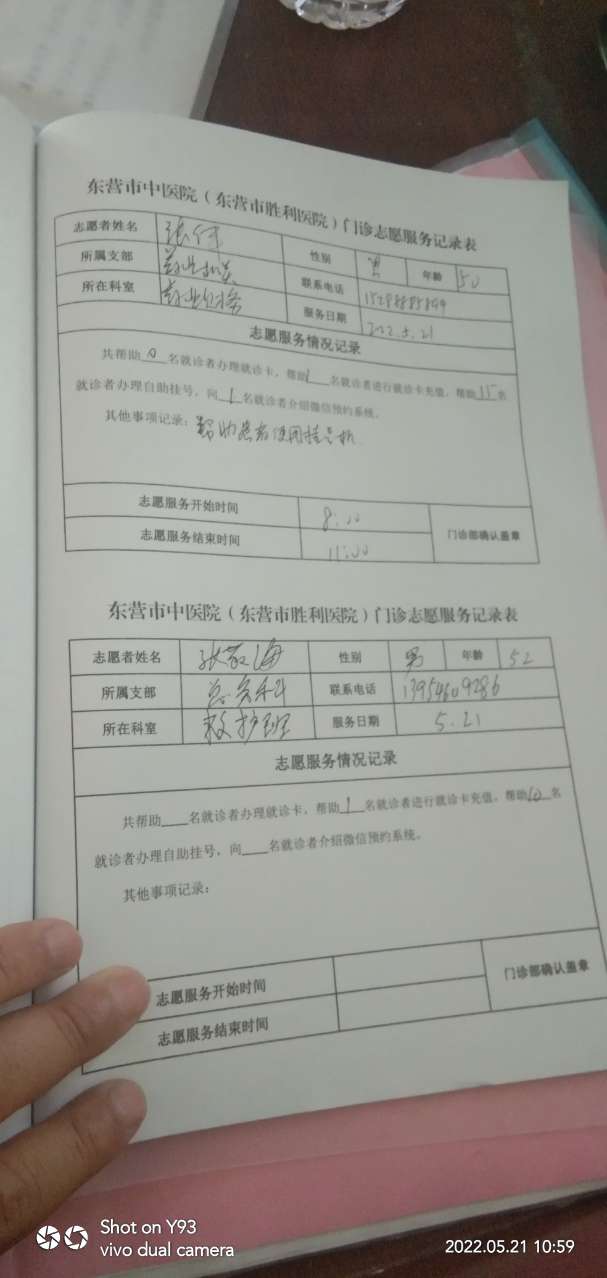 东营市中医院（东营市胜利医院）门诊志愿服务记录表
志愿者姓名 性别 男 年龄 50
所属支部 联系电话
所在科室 服务日期 2022.5.21
志愿服务情况记录
共帮助 0 名就诊者办理就诊卡，帮助 1 名就诊者进行就诊卡充值，帮助 15 名
就诊者办理自助挂号，向 1 名就诊者介绍微信预约系统。
其他事项记录：帮助患者使用挂号机
志愿服务开始时间 8:00
门诊部确认盖章
志愿服务结束时间 11:00
东营市中医院（东营市胜利医院）门诊志愿服务记录表
志愿者姓名 性别 男 年龄 52
所属支部 总务科 联系电话 13954609286
所在科室 救护班 服务日期 5.21
志愿服务情况记录
共帮助____名就诊者办理就诊卡，帮助 1 名就诊者进行就诊卡充值，帮助 10 名
就诊者办理自助挂号，向____名就诊者介绍微信预约系统。
其他事项记录：
志愿服务开始时间
门诊部确认盖章
志愿服务结束时间
Shot on Y93
vivo dual camera
2022.05.21 10:59